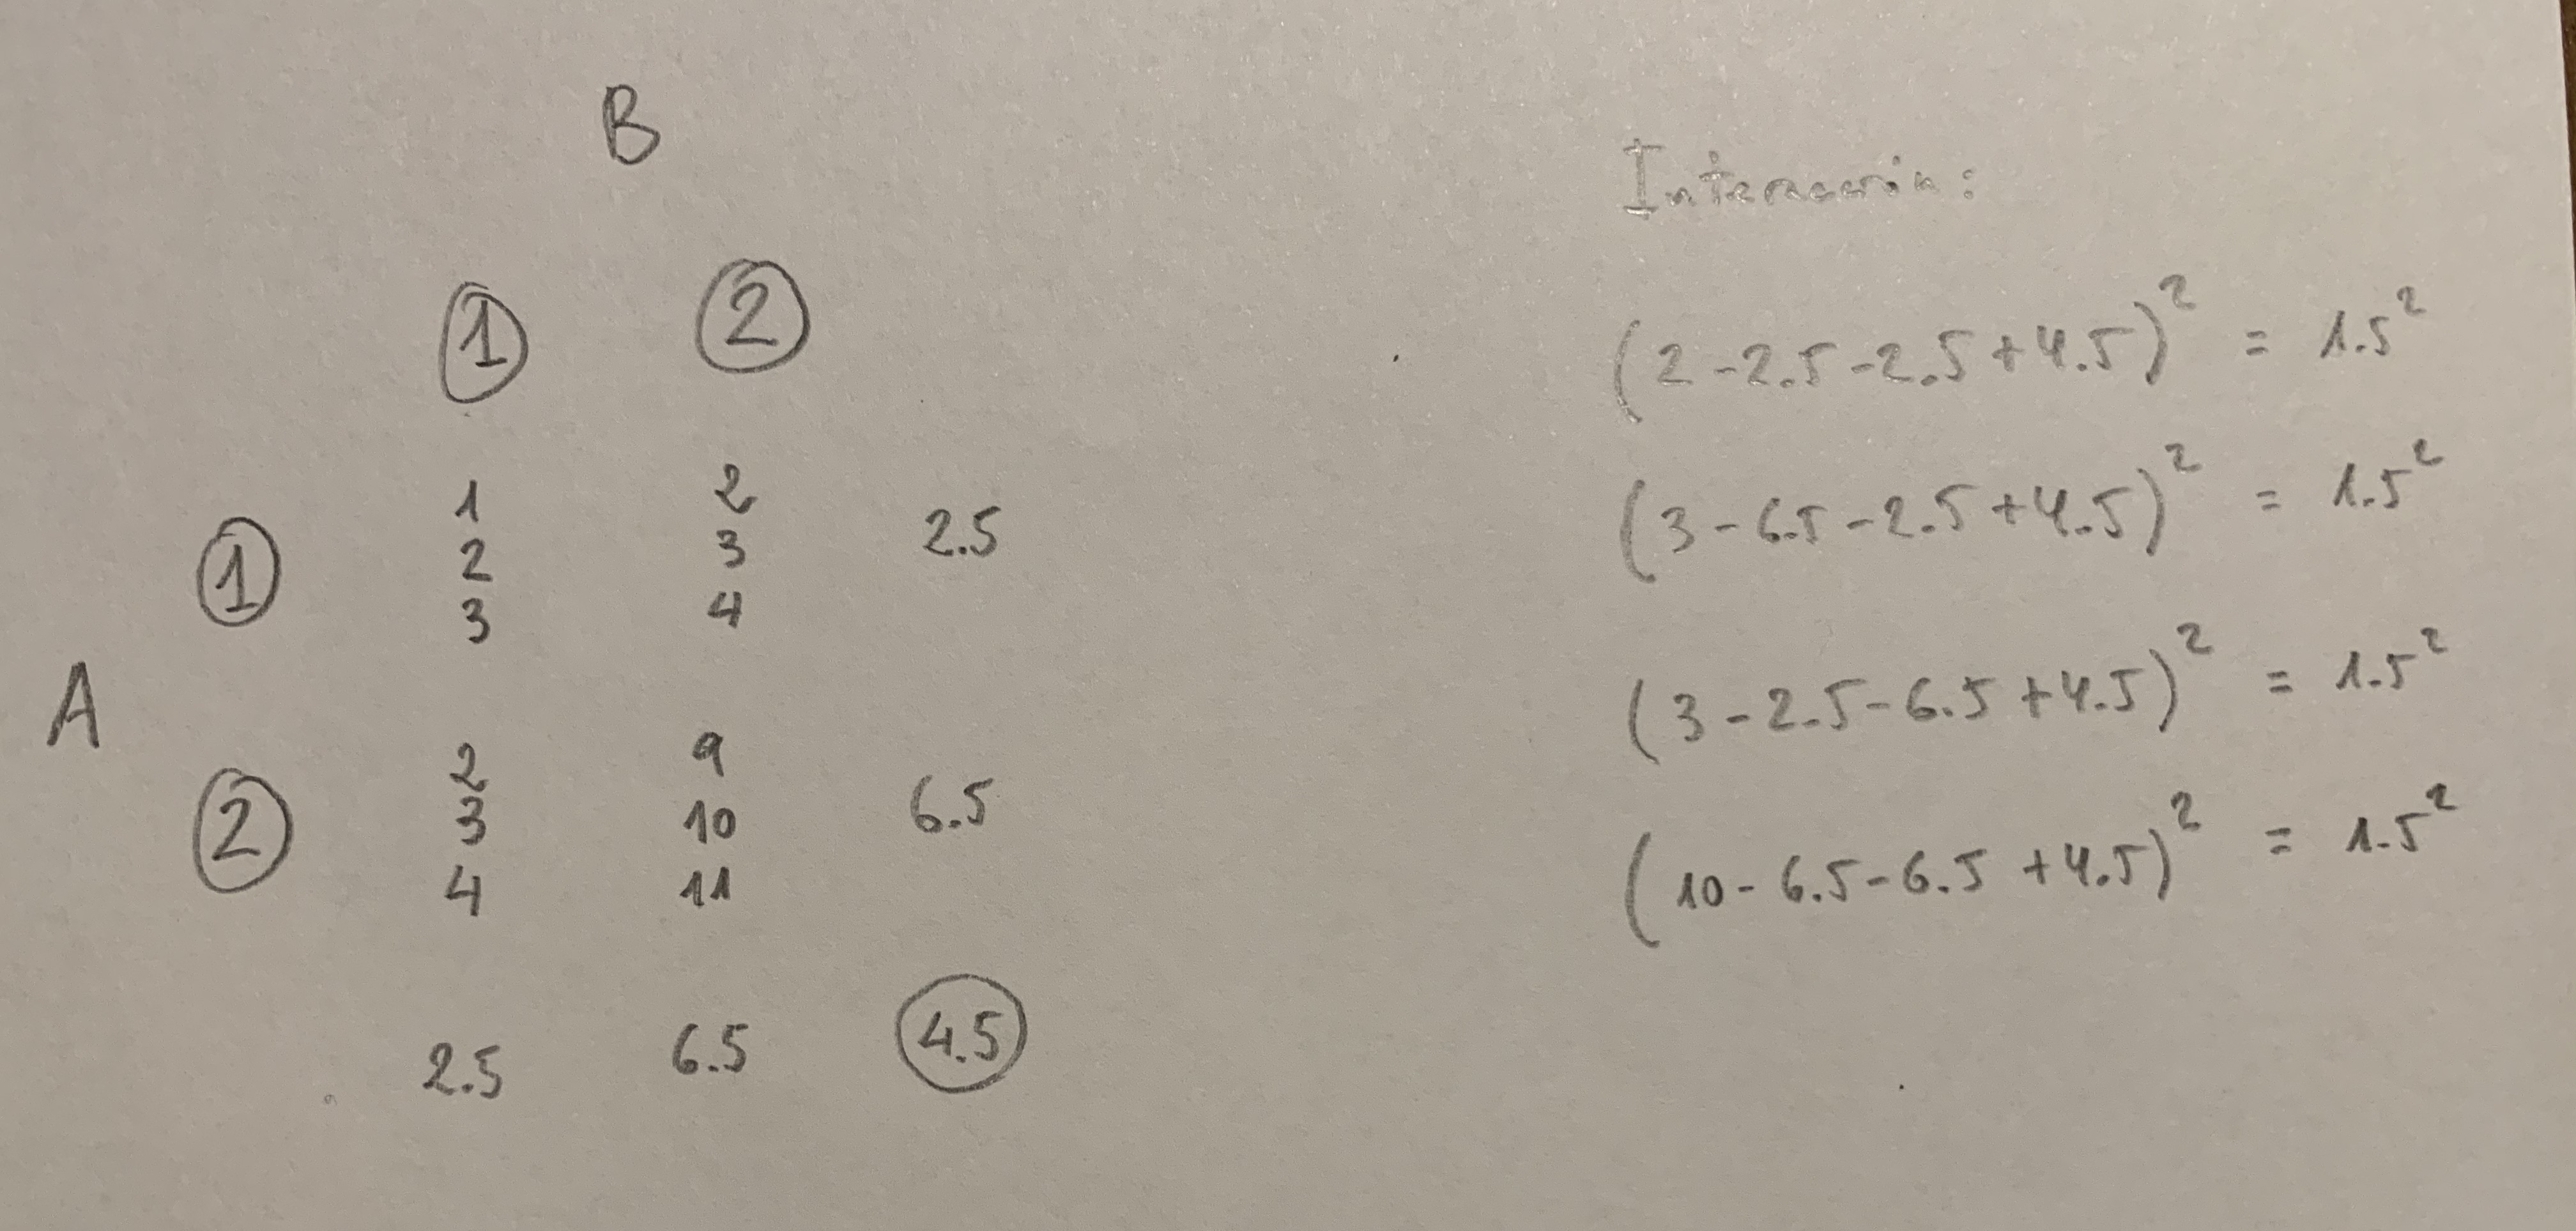 B
Interacción:
1 2
(2 - 2.5 - 2.5 + 4.5)² = 1.5²
1 2
1 2 3 2.5
3 4
(3 - 6.5 - 2.5 + 4.5)² = 1.5²
A
2 9
2 3 10 6.5
4 11
(3 - 2.5 - 6.5 + 4.5)² = 1.5²
(10 - 6.5 - 6.5 + 4.5)² = 1.5²
2.5 6.5 4.5